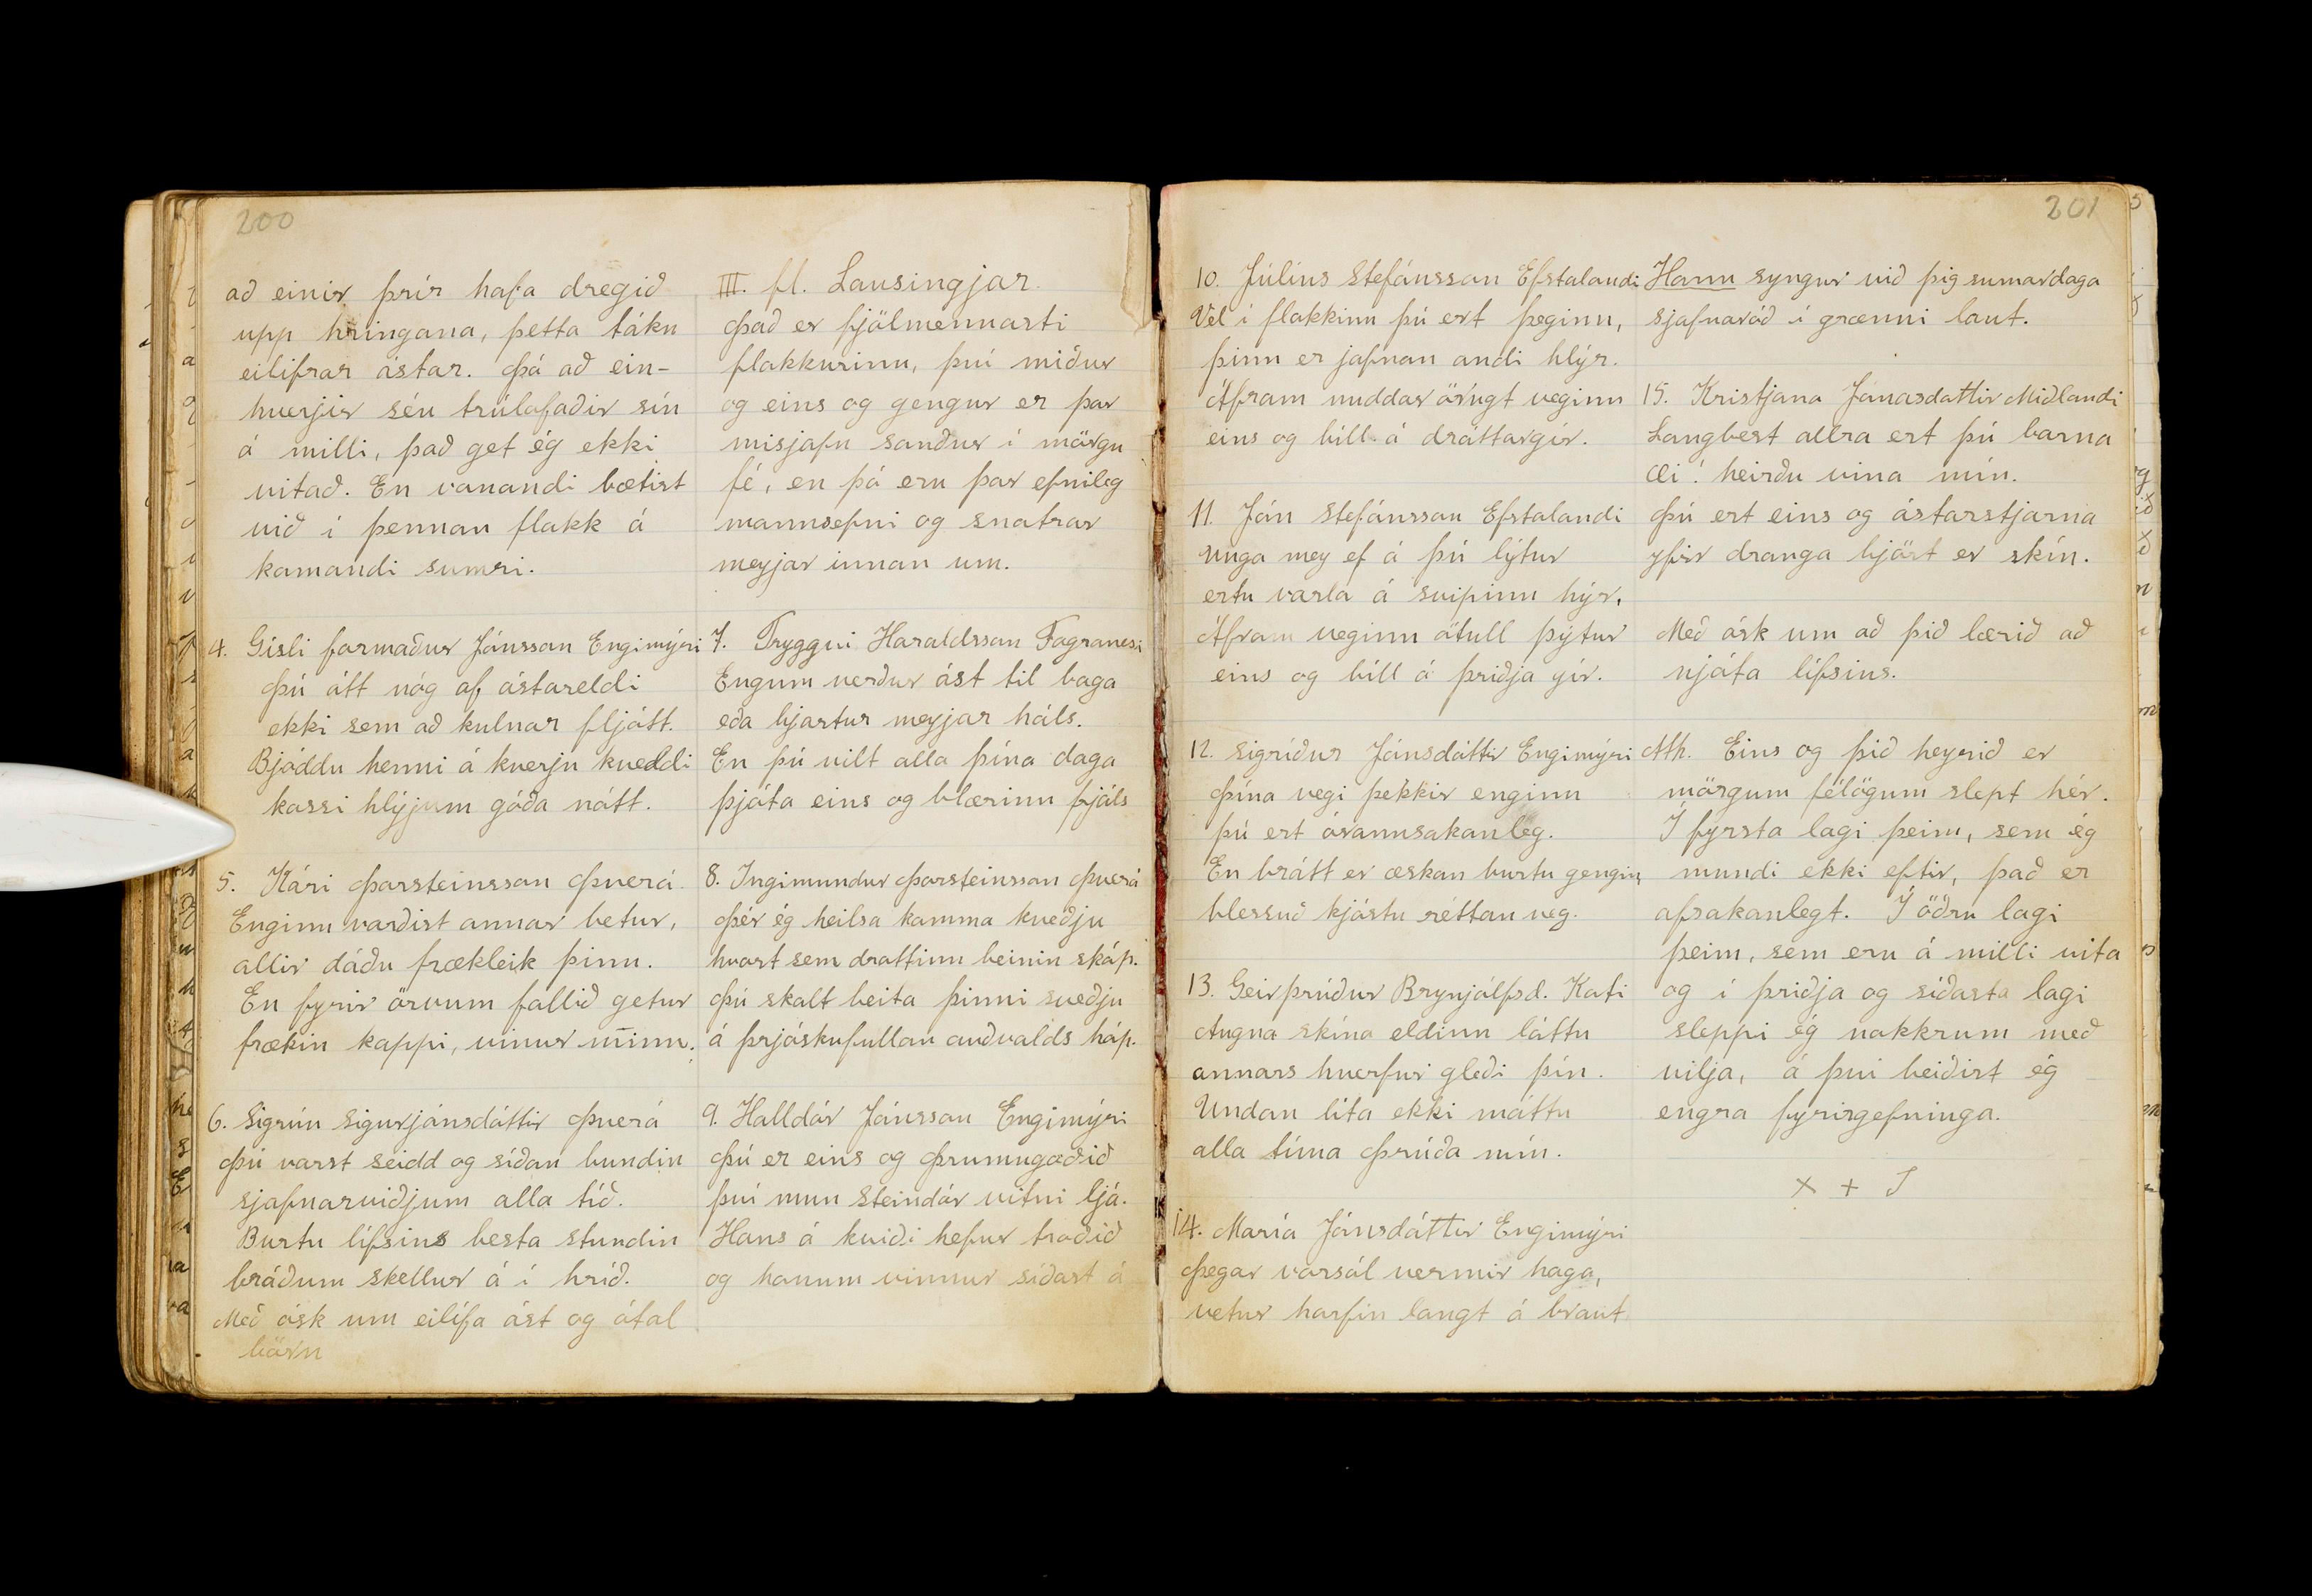 200
að einir þrír hafa dregið
upp hringana, þetta tákn
eilífrar ástar. Þó að ein-
hverjir séu trúlofaðir sín
á milli, það get ég ekki
vitað. En vonandi bætist
við í þennan flokk á
komandi sumri.
4. Gísli formaður Jónsson Engimýri
Þú átt nóg af ástareldi
ekki sem að kulnar fljótt.
Bjóddu henni á hverju kveldi
kossi hlýjum góða nótt.
5. Kári Þorsteinsson Þverá
Enginn varðist annar betur,
allir dáðu frækleik þinn.
En fyrir örvum fallið getur
frækin kappi, vinur minn.
6. Sigrún Sigurjónsdóttir Þverá
Þú varst seidd og síðan bundin
sjafnarviðjum alla tíð.
Burtu lífsins besta stundin
bráðum skellur á í hríð.
Með ósk um eilífa ást og ótal
börn
III. fl. Lausingjar.
Það er fjölmennasti
flokkurinn, því miður
og eins og gengur er þar
misjafn sauður í mörgu
fé, en þó eru þar efnileg
mannsefni og snotrar
meyjar innan um.
7. Tryggvi Haraldsson Fagranesi
Engum verður ást til baga
eða bjartur meyjar háls.
En þú vilt alla þína daga
þjóta eins og blærinn frjáls
8. Ingimundur Þorsteinsson Þverá
Þér ég heilsa komma kveðju
hvort sem drottinn beinin skóp.
Þú skalt beita þinni sveðju
á þrjóskufullan auðvalds hóp.
9. Halldór Jónsson Engimýri
Þú er eins og Þrumugoðið
því mun Steindór vitni ljá.
Hans á kviði hefur troðið
og honum vinnur síðast á
201
10. Júlíus Stefánsson Efstalandi
Vel í flokkinn þú ert þeginn,
þinn er jafnan andi hlýr.
Áfram nuddar örugt veginn
eins og bíll á dráttargír.
11. Jón Stefánsson Efstalandi
Unga mey ef á þú lýtur
ertu varla á svipinn hýr,
Áfram veginn ötull þýtur
eins og bíll á þriðja gír.
12. Sigríður Jónsdóttir Engimýri
Þína vegi þekkir enginn
þú ert órannsakanleg.
En brátt er æskan burtu gengin,
blessuð kjóstu réttan veg.
13. Geirþrúður Brynjólfsd. Koti
Augna skína eldinn láttu
annars hverfur gleði þín.
Undan líta ekki máttu
alla tíma Þrúða mín.
14. María Jónsdóttir Engimýri
Þegar vorsól vermir haga,
vetur horfin langt á braut
Hann syngur við þig sumardaga
sjafnaróð í grænni laut.
15. Kristjana Jónasdóttir Miðlandi
Langbest allra ert þú barna
Æi! heirðu vina mín.
Þú ert eins og ástarstjarna
yfir dranga björt er skín.
Með ósk um að þið lærið að
njóta lífsins.
Ath. Eins og þið heyrið er
mörgum félögum slept hér.
Í fyrsta lagi þeim, sem ég
mundi ekki eftir, það er
afsakanlegt. Í öðru lagi
þeim, sem eru á milli vita
og í þriðja og síðasta lagi
sleppi ég nokkrum með
vilja, á því beiðist ég
engra fyrirgefninga.
X + J